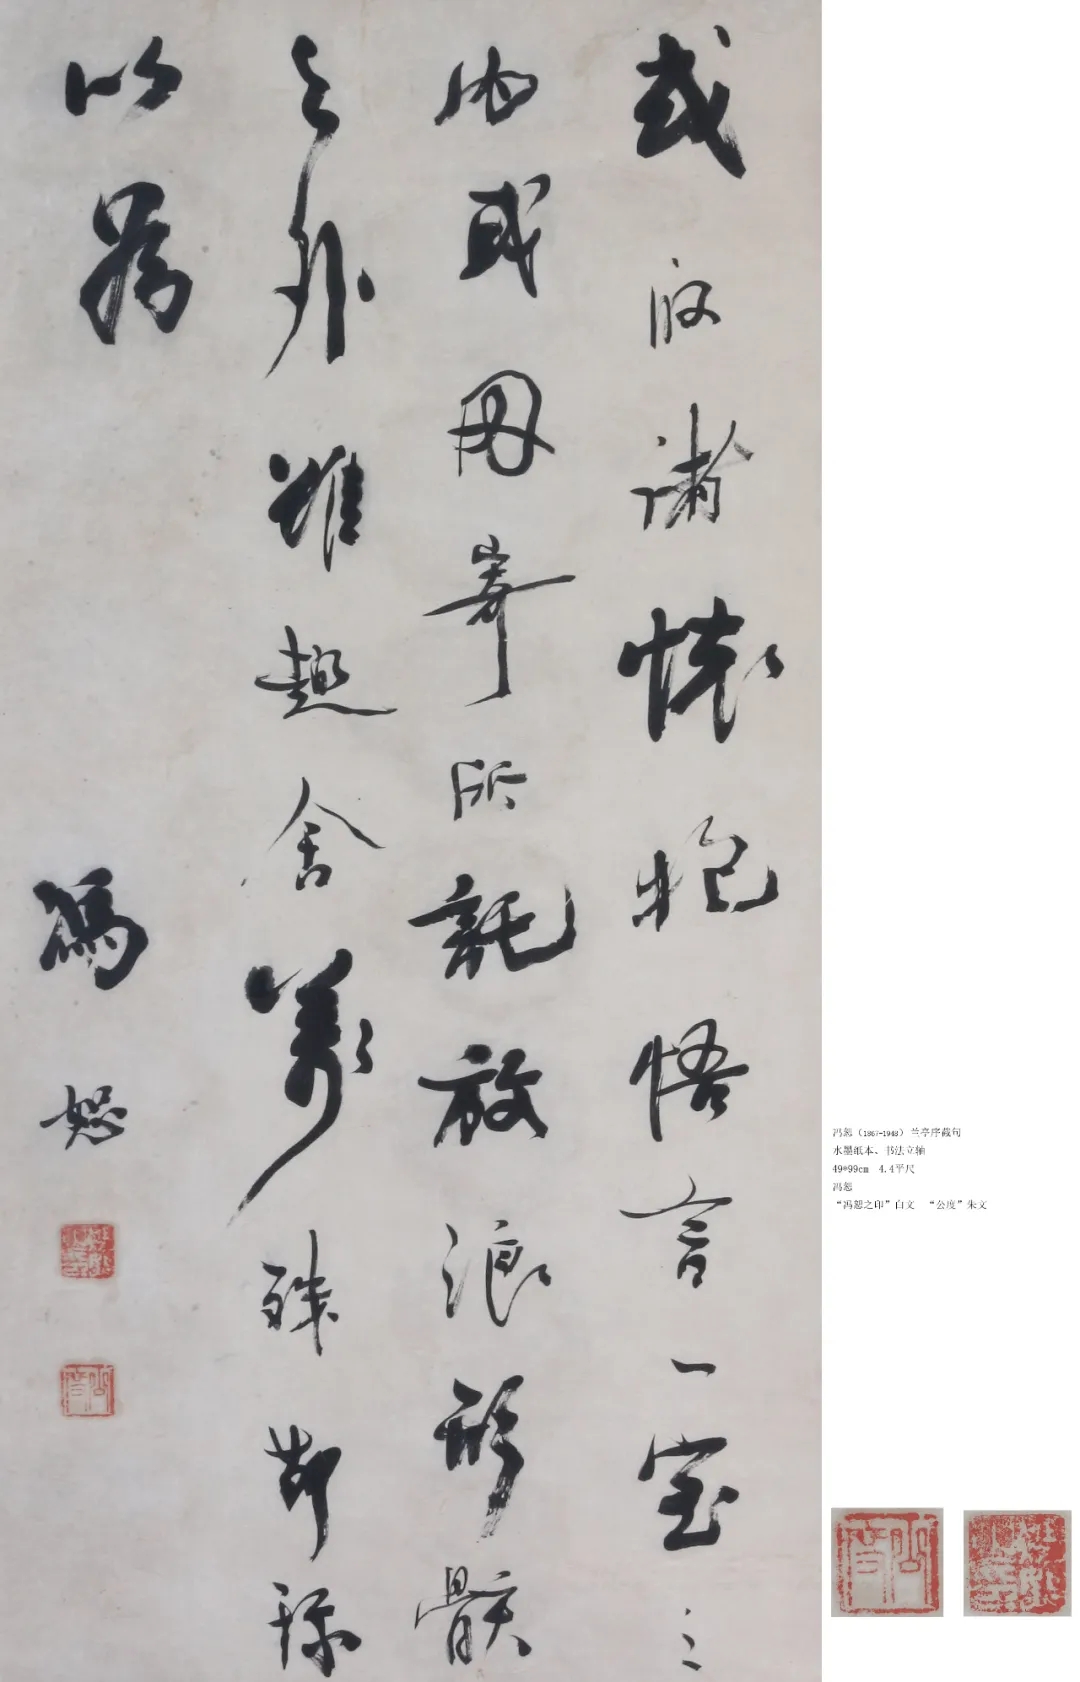 或取諸懷抱悟言一室之
內或因寄所託放浪形骸
之外雖趣舍萬殊
以
馮恕
馮恕之印
公度
冯恕（1867-1948）兰亭序截句
水墨纸本、书法立轴
49*99cm 4.4平尺
冯恕
“冯恕之印”白文 “公度”朱文
公度
馮恕之印